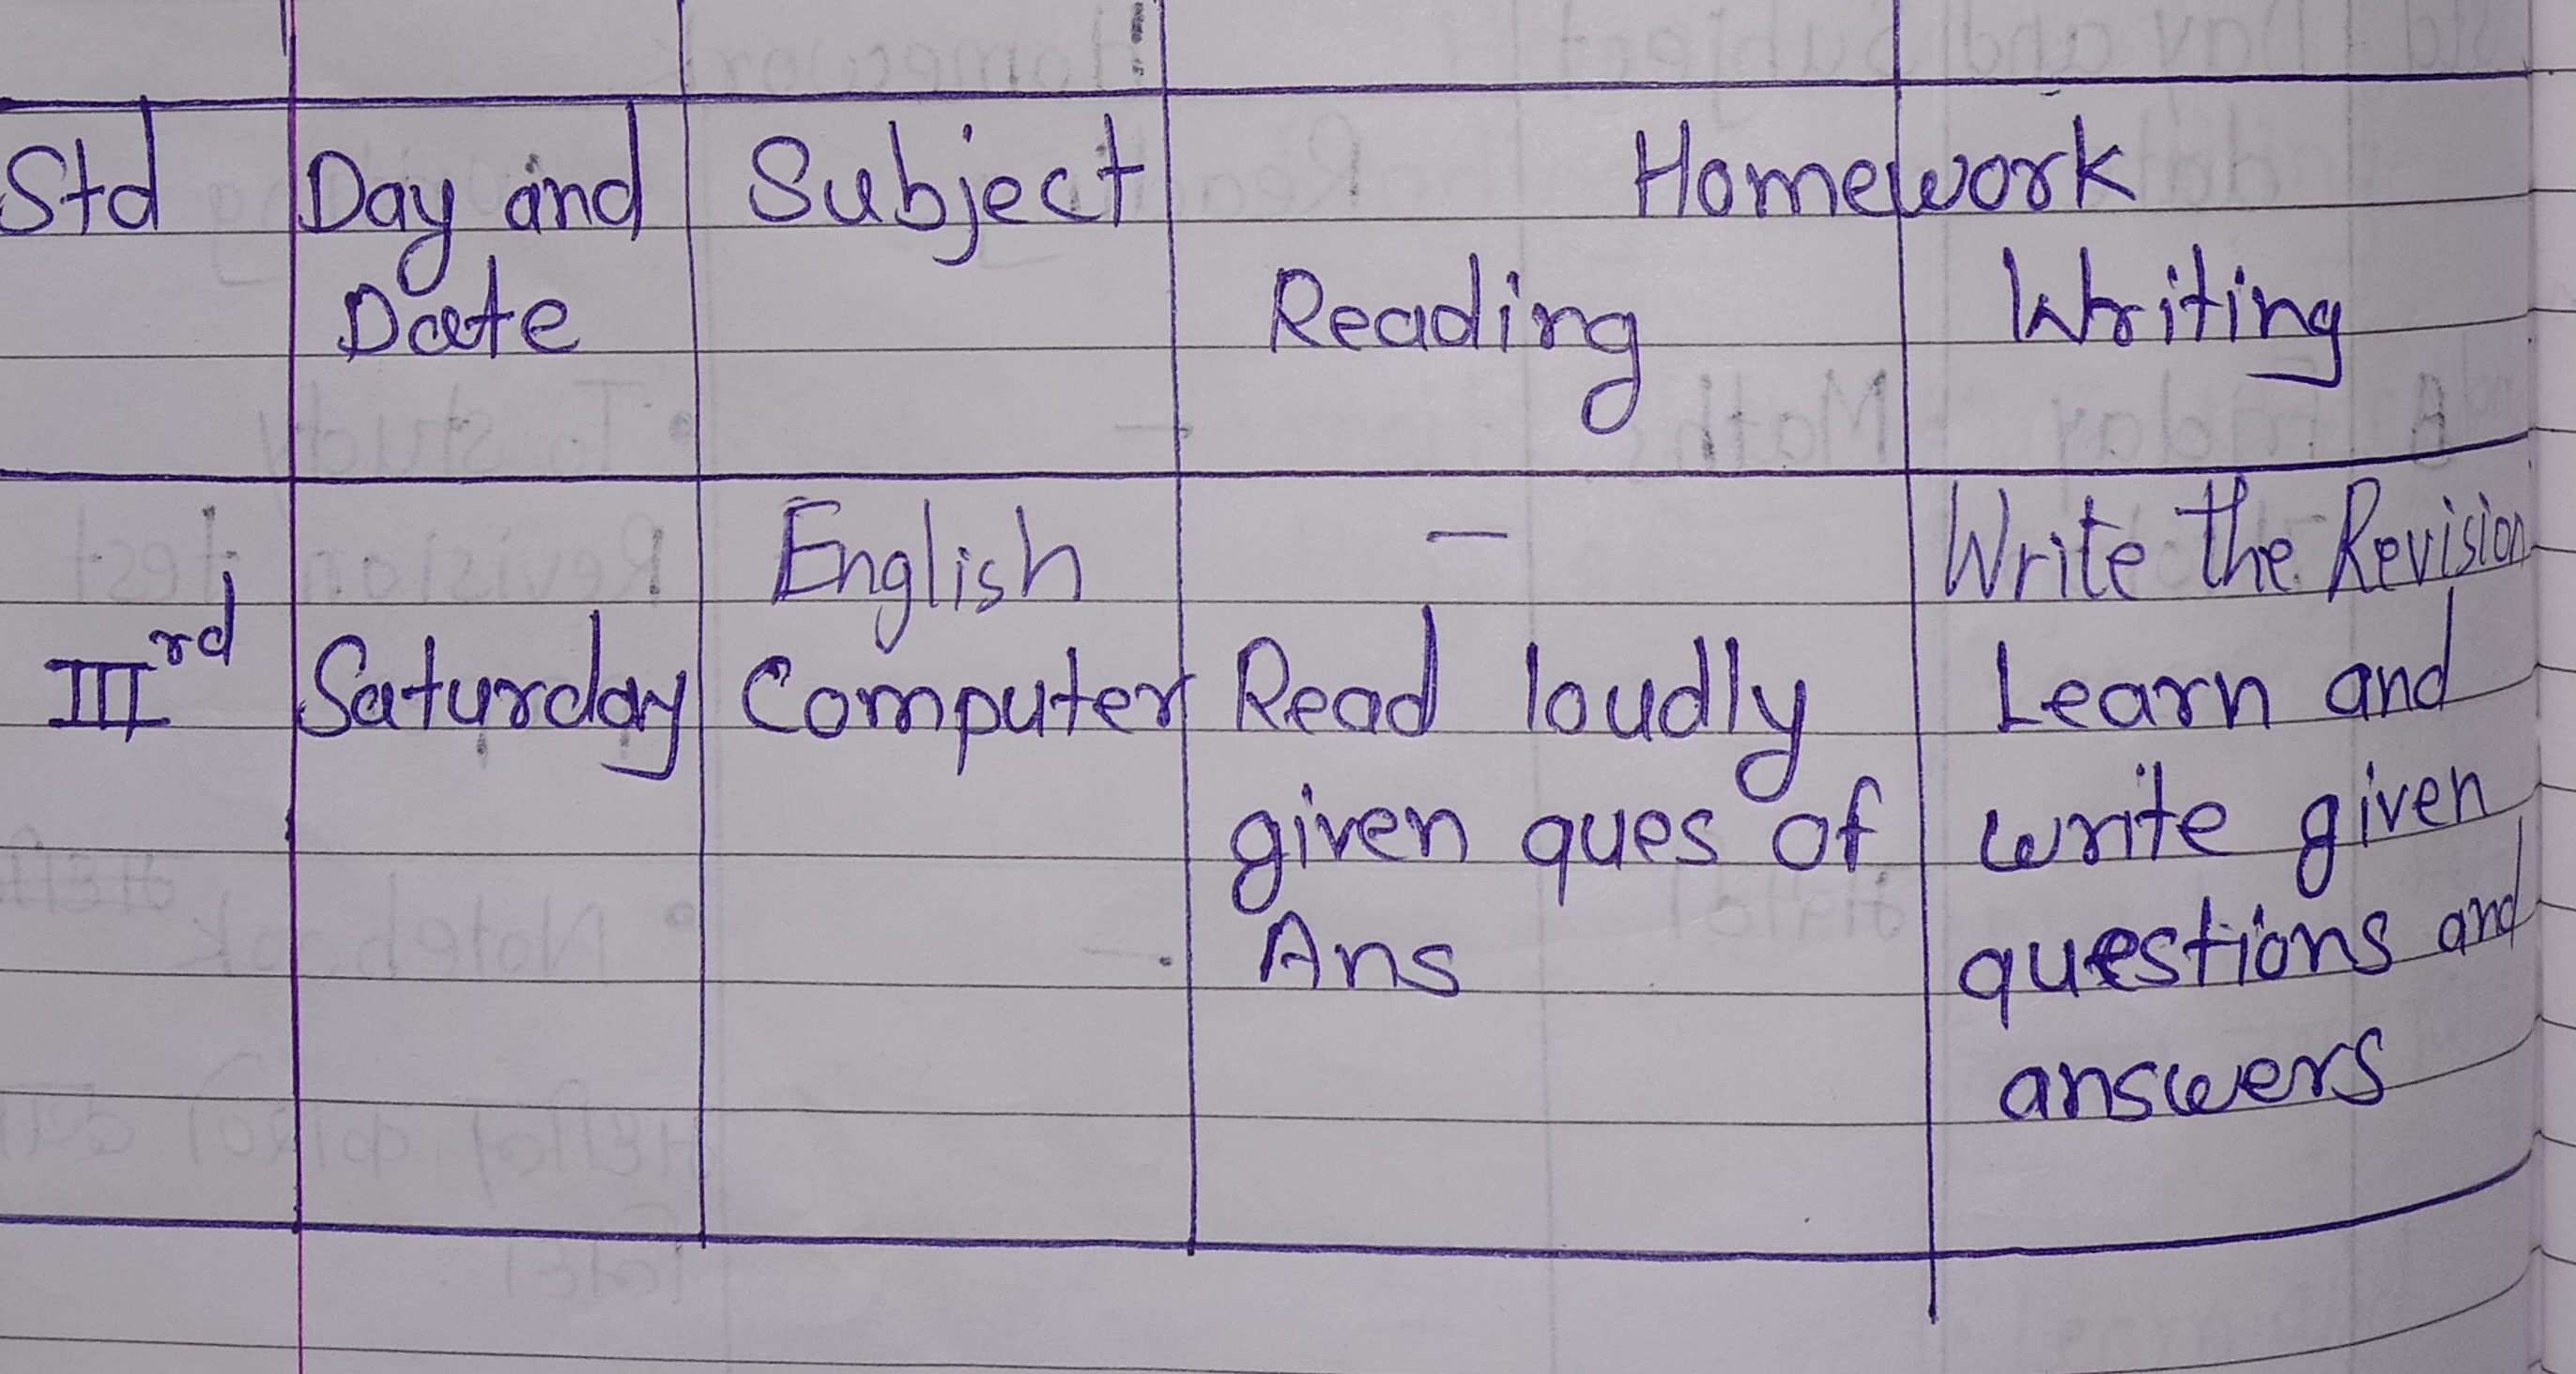 Std Day and Subject Homework
Date Reading Writing
English - Write the Revision
IIIrd Saturday Computer Read loudly Learn and
given ques of write given
Ans questions and
answers